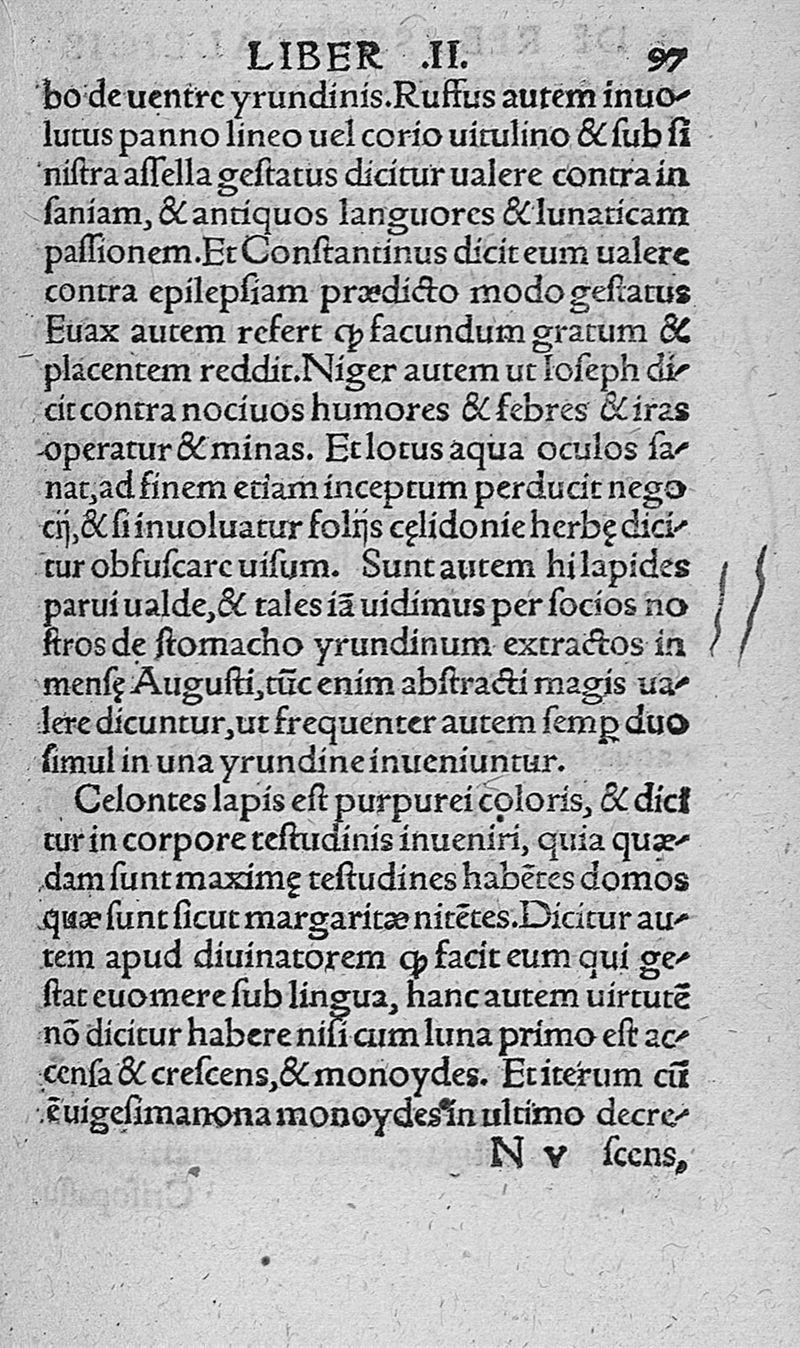 LIBER .II. 97
bo de uentre yrundinis. Ruffus autem inuo-
lutus panno lineo uel corio uitulino & ſub ſi
niſtra aſſella geſtatus dicitur ualere contra in
ſaniam, & antiquos languores & lunaticam
paſſionem. Et Conſtantinus dicit eum ualere
contra epilepſiam prædicto modo geſtatus
Euax autem refert ꝙ facundum gratum &
placentem reddit. Niger autem ut Ioſeph di-
cit contra nociuos humores & febres & iras
operatur & minas. Et lotus aqua oculos ſa-
nat, ad finem etiam inceptum perducit nego
cij, & ſi inuoluatur folijs cęlidonie herbę dici-
tur obfuſcare uiſum. Sunt autem hi lapides
parui ualde, & tales iã uidimus per ſocios no
ſtros de ſtomacho yrundinum extractos in
menſę Auguſti, tũc enim abſtracti magis ua-
lere dicuntur, ut frequenter autem ſemꝑ duo
ſimul in una yrundine inueniuntur.
Celontes lapis eſt purpurei coloris, & dici
tur in corpore teſtudinis inueniri, quia quæ-
dam ſunt maximę teſtudines habẽtes domos
quæ ſunt ſicut margaritæ nitẽtes. Dicitur au-
tem apud diuinatorem ꝙ facit eum qui ge-
ſtat euomere ſub lingua, hanc autem uirtutẽ
nõ dicitur habere niſi cum luna primo eſt ac-
cenſa & creſcens, & monoydes. Et iterum cũ
ẽ uigeſimanona monoydes in ultimo decre-
N v ſcens,